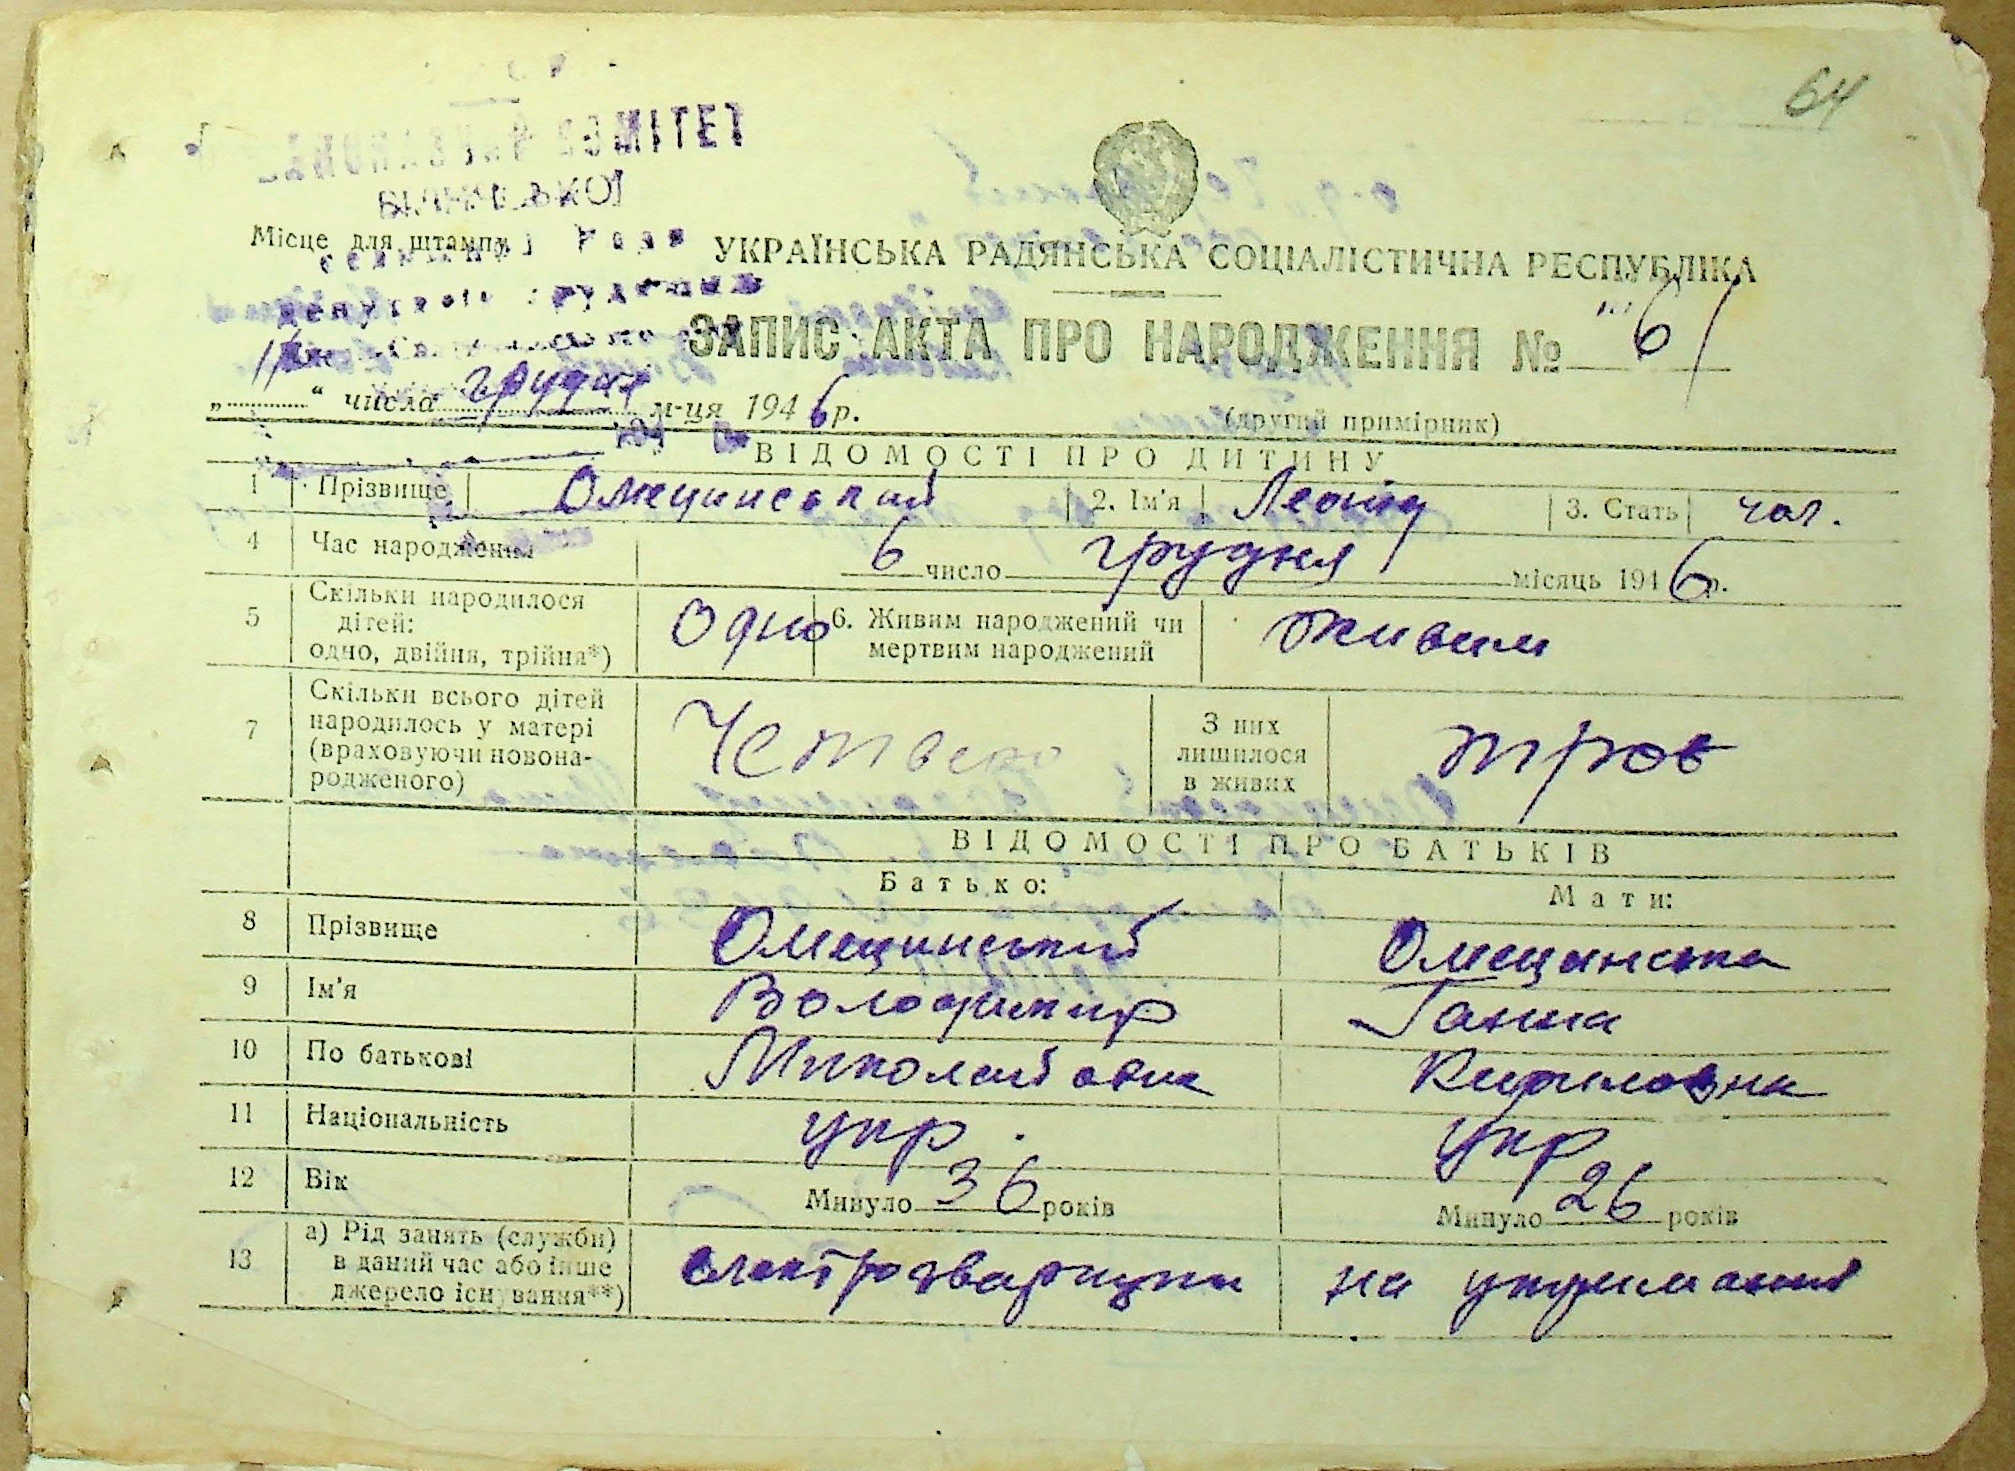 64
КОМІТЕТ
Місце для штампу
УКРАЇНСЬКА РАДЯНСЬКА СОЦІАЛІСТИЧНА РЕСПУБЛІКА
ЗАПИС АКТА ПРО НАРОДЖЕННЯ № 61
„ 11 “ числа грудня м-ця 1946 р.
(другий примірник)
ВІДОМОСТІ ПРО ДИТИНУ
1 Прізвище Омецинський 2. Ім'я Леонід 3. Стать чол.
4 Час народження 6 число грудня місяць 1946 р.
5 Скільки народилося дітей: одно, двійня, трійня*) Одно 6. Живим народжений чи мертвим народжений живим
7 Скільки всього дітей народилось у матері (враховуючи новонародженого) Четверо З них лишилося в живих троє
ВІДОМОСТІ ПРО БАТЬКІВ
Батько: Мати:
8 Прізвище Омецинський Омецинська
9 Ім'я Володимир Ганна
10 По батькові Миколайович Кириловна
11 Національність укр. укр
12 Вік Минуло 36 років Минуло 26 років
13 а) Рід занять (служби) в даний час або інше джерело існування**) електрозварщик на укриманні